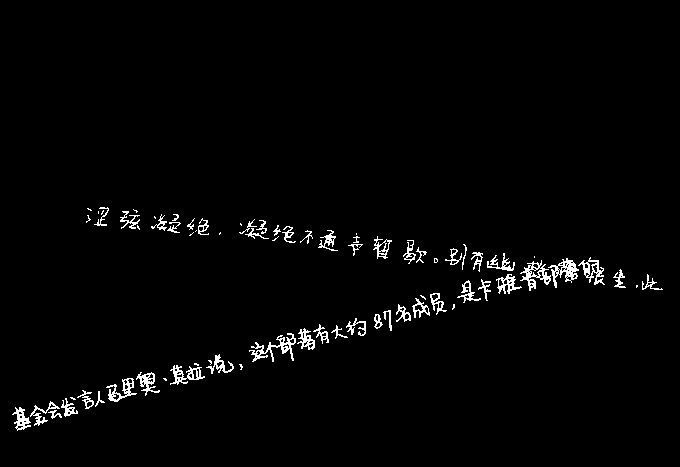 涩弦凝绝，凝绝不通声暂歇。别有幽 生，此
基金会发言人马里奥·莫拉说，这个部落有大约87名成员，是卡雅普部落的